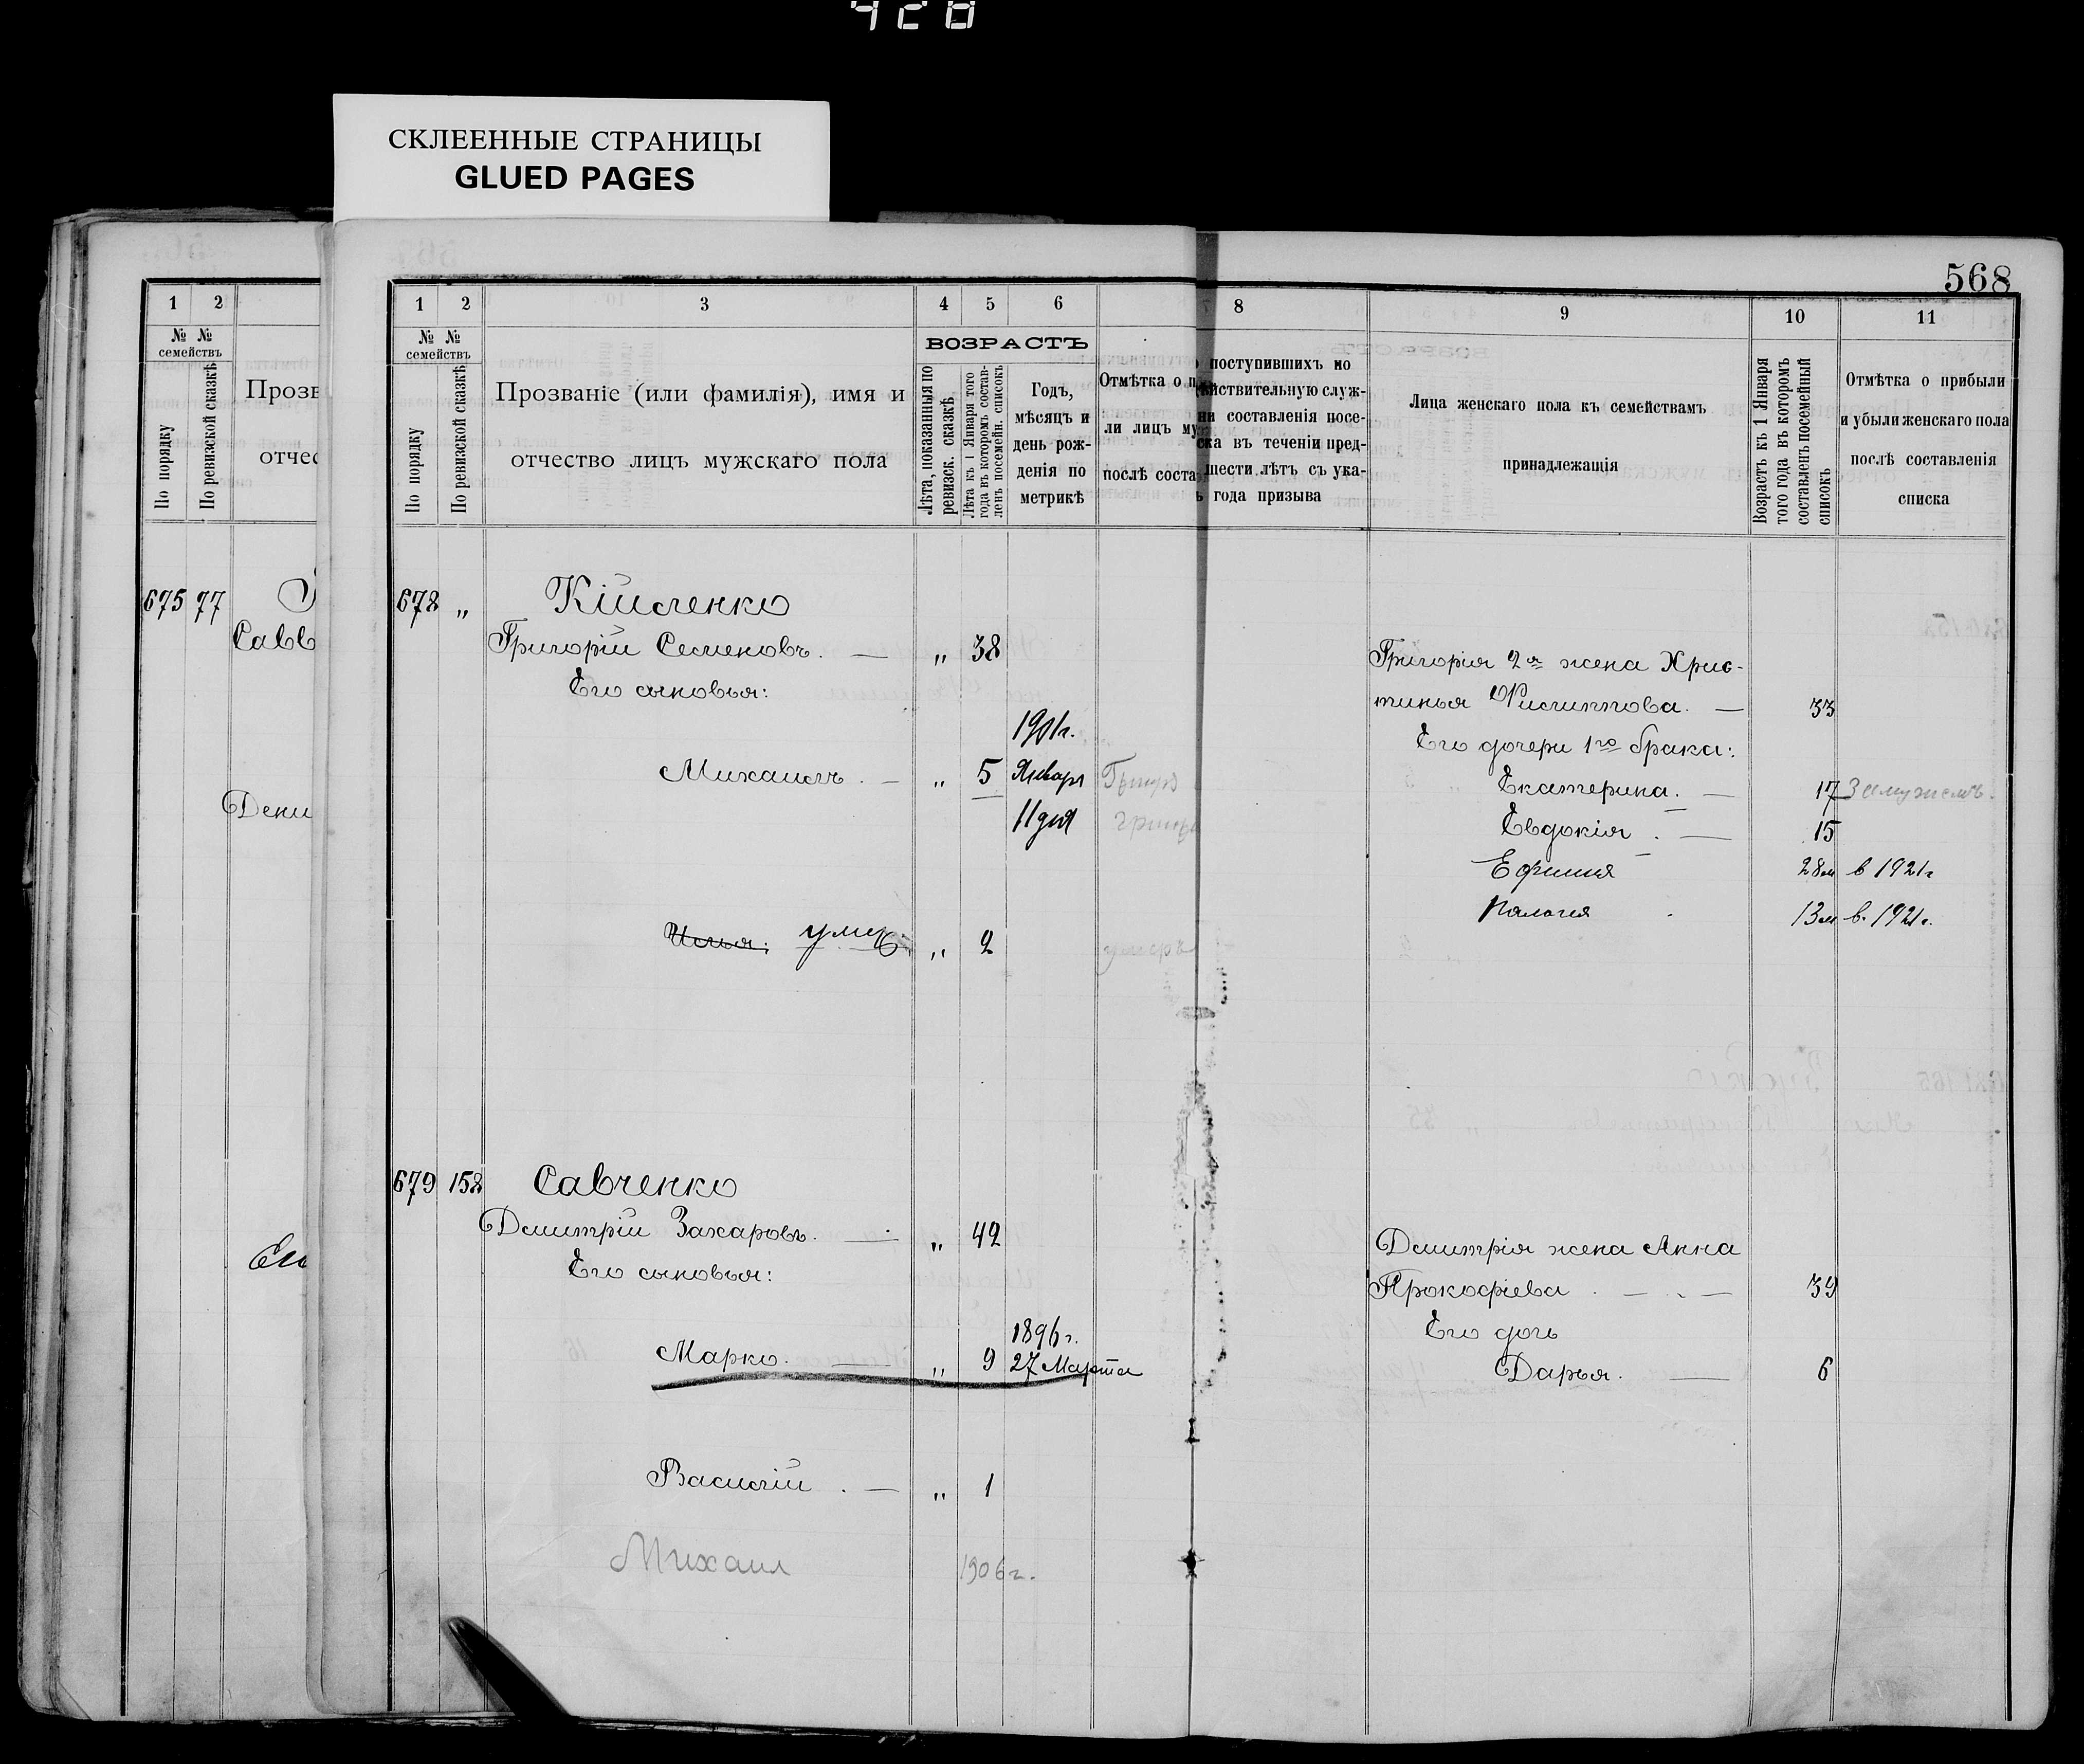 428
СКЛЕЕННЫЕ СТРАНИЦЫ
GLUED PAGES
568
1 2
№ №
семействъ
По порядку
По ревизской сказкѣ
675 77
Савв
Дени
1 2 3 4 5 6 8 9 10 11
№ №
семействъ
По порядку
По ревизской сказкѣ
Прозваніе (или фамилія), имя и
отчество лицъ мужскаго пола
ВОЗРАСТЪ
Лѣта, показанныя по
ревизск. сказкѣ
Лѣта къ 1 Января того
года въ которомъ состав-
ленъ посемейн. списокъ
Годъ,
мѣсяцъ и
день рож-
денія по
метрикѣ
Отмѣтка о п
ли лицъ му
послѣ соста
поступившихъ по
йствительную служ-
ни составленія посе-
ска въ теченіи пред-
шести лѣтъ съ ука-
года призыва
Лица женскаго пола къ семействамъ
принадлежащія
Возрастъ къ 1 Января
того года въ которомъ
составленъ посемейный
списокъ
Отмѣтка о прибыли
и убыли женскаго пола
послѣ составленія
списка
678 „
Григорій Семеновъ. — „ 38
Его сыновья:
1901г.
Михаилъ. — „ 5 Январ
11 дня
Илья. умер „ 2 умеръ
Григорія 2я жена Хрис-
тинья Филиппова. — 33
Его дочери 1го брака:
Екатерина. — 17 Замужемъ.
Евдокія. — 15
Ефимия 28 м в 1921г
13 м в. 1921г.
679 158 Савченко
Дмитрій Захаровъ. — „ 42
Его сыновья:
1896г.
Марко. — „ 9 27 Марта
Василій. — „ 1
Михаил 1906г.
Дмитрія жена Анна
Прокофіева. — 39
Его дочь
Дарья. — 6